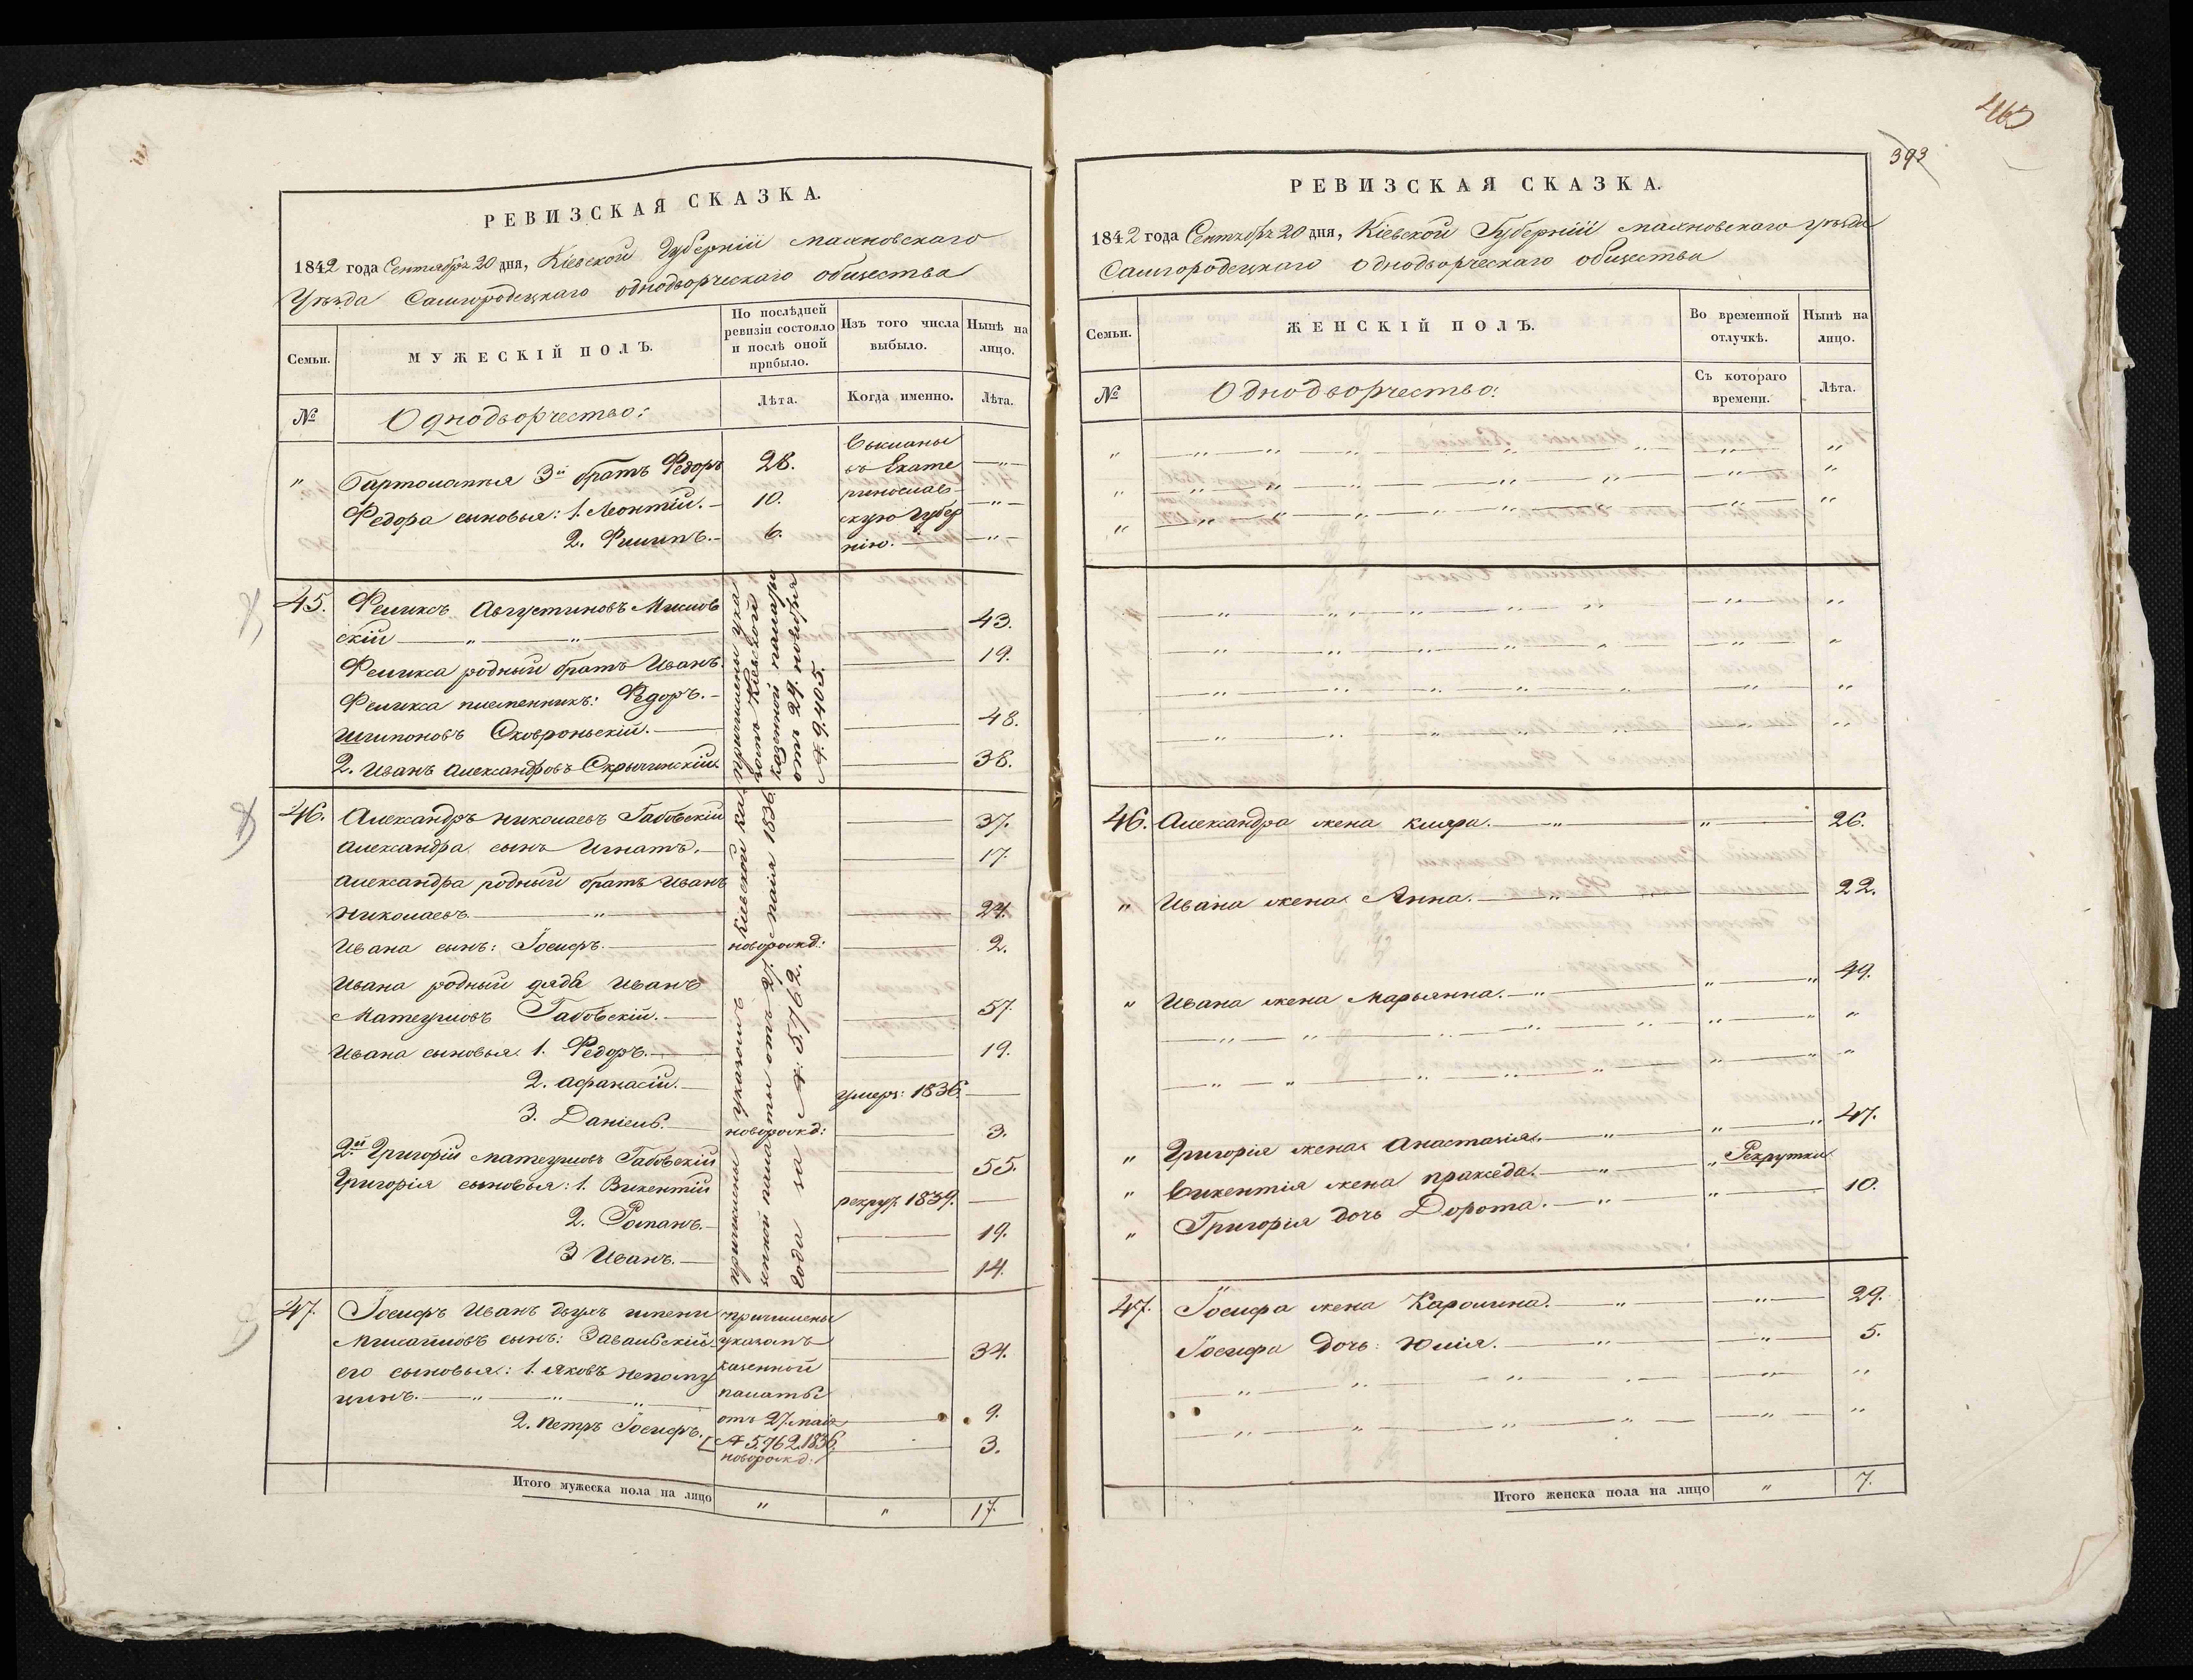 РЕВИЗСКАЯ СКАЗКА.
1842 года Сентября 20 дня, Кіевской Губерніи махновскаго
Уѣзда Самгородецкаго однодворческаго общества
Семьи.
МУЖЕСКІЙ ПОЛЪ.
По послѣдней ревизіи состояло и послѣ оной прибыло.
Изъ того числа выбыло.
Нынѣ на лицо.
№
Однодворчество:
Лѣта.
Когда именно.
Лѣта.
" 3й братъ Ѳедоръ 28. —"—
Ѳедора сыновья: 1. Леонтій. — 10. —"—
2. Филипъ. — 6. —"—
Высланы
въ Екате
ринослав-
скую Губер
нію. —
45. Феликсъ Августиновъ
скій — " — " — 43.
Феликса родный братъ Иванъ. 19.
Феликса племенникъ: Ѳедоръ. —
Сковроньскій. — 48.
2. Иванъ Александровъ 38.
причислены ука
зомъ Кіевской
казенной палаты
от 29. ноября
№ 9,405.
46. Александръ николаевъ Габовскій 37.
Александра сынъ Игнатъ. — 17.
Александра родный братъ Иванъ
Николаевъ — " — 24.
Ивана сынъ: Іосифъ. — новорожд: 2.
Ивана родный дядя Иванъ
Матеушовъ Габовскій. — 57.
Ивана сыновья. 1. Ѳедоръ. — 19.
2. афанасій. — умеръ: 1836. —
3. Даніель. — новорожд: 3.
2й Григорій матеушовъ Габовскій 55.
Григорія сыновья: 1. Викентій рекрут. 1839. —
2. Романъ. — 19.
3 Иванъ. — 14.
причислены указомъ Кіевской ка
зенной палаты отъ 27. маія 1836.
года за № 5,762.
47. Іосифъ Иванъ двухъ имени
сынъ: Завальскій 34.
его сыновья: 1. Яковъ Непому
цинъ. — " — " — " 9.
2. Петръ Іосифъ. 3.
причислены
указомъ
казенной
палаты
отъ 27. маія
№ 5,762. 1836.
новорожд:
Итого мужеска пола на лицо " " 17.
463
393
РЕВИЗСКАЯ СКАЗКА.
1842 года Сентября 20 дня, Кіевской Губерніи махновскаго уѣзда
Самгородецкаго Однодворческаго общества
Семьи.
ЖЕНСКІЙ ПОЛЪ.
Во временной отлучкѣ.
Нынѣ на лицо.
№
Однодворчество:
Съ котораго времени.
Лѣта.
46. Александра жена кляра. — " — " — 26.
" Ивана жена Анна. — " — 22.
" Ивана жена Марьянна. — " — " — " 49.
" Григорія жена Анастазія. — " — " — " 47.
" Викентія жена пракседа. — " — " Рекрутка
" Григорія дочь Дорота. — " — " — 10.
47. Іосифа жена Каролина. — " — " — 29.
Іосифа дочь: Юлія. — " — " — 5.
Итого женска пола на лицо " 7.